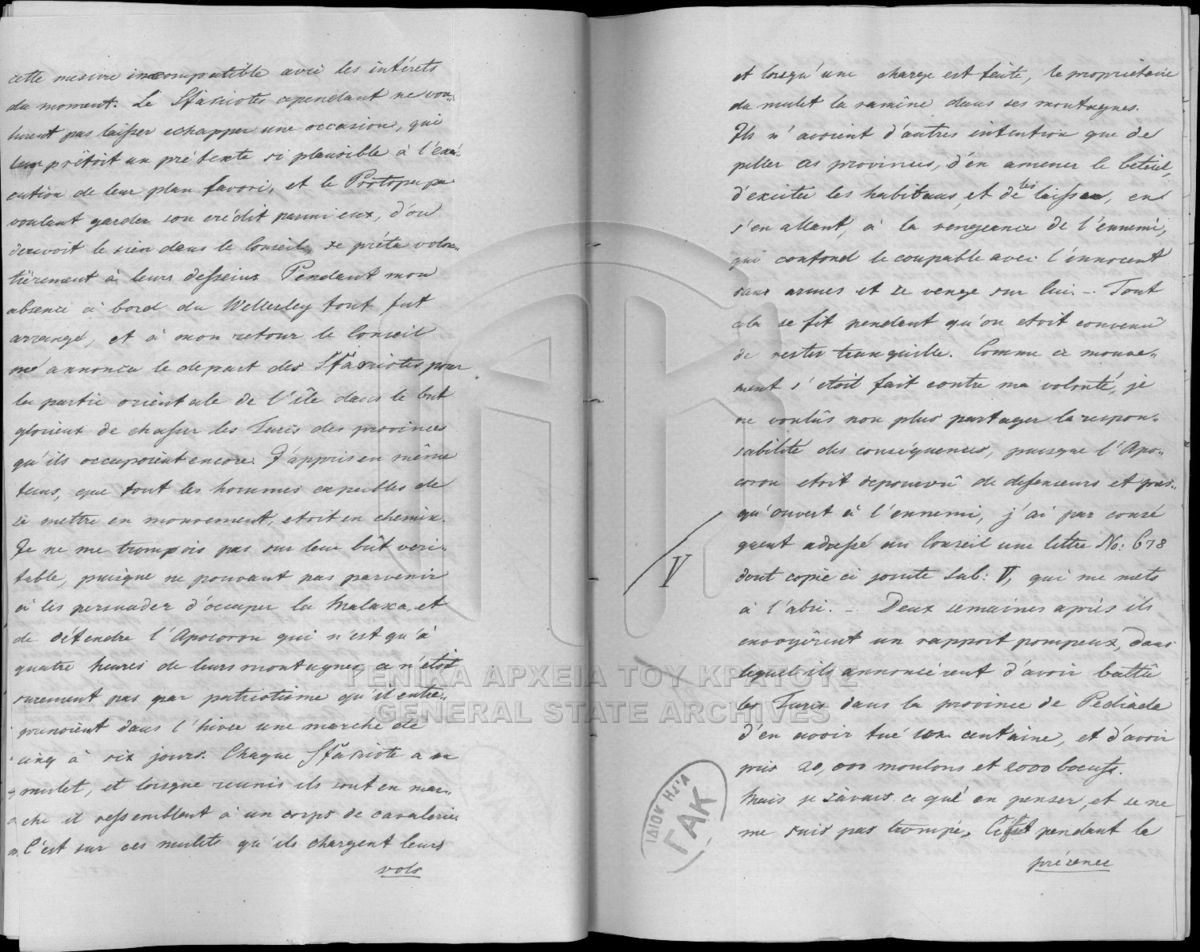 cette mesure incompatible avec les intérets
du moment. Le Sfasiotes cependant ne vou-
lurent pas laisser echapper une occasion, qui
leur prêtoit un prétexte si plausible à l'exé-
cution de leur plan favori, et le Protopapa
voulant garder son crédit parmi eux, d'ou
derivoit le sien dans le Conseil, se prêta volon-
tièrement à leurs desseins. Pendant mon
absence à bord du Wellesley tout fut
arrangé, et à mon retour le Conseil
m'annonca le depart des Sfasiotes pour
la partie orientale de l'île dans le but
glorieux de chasser les Turcs des provinces
qu'ils occupoient encore. J'appris en même
tems, que tout les hommes capables de
se mettre en mouvement, etoit en chemin.
Je ne me trompois pas sur leur bût veri-
table, puisque ne pouvant pas parvenir
à les persuader d'occuper la Malaxa et
de défendre l'Apocoron qui n'est qu'à
quatre heures de leurs montagnes, ce n'étoit
surement pas par patriotisme qu'il entre-
prenoient dans l'hiver une marche de
cinq à six jours. Chaque Sfasiote a un
mulet, et lorsque reunis ils sont en mar-
che il ressemblent à un corps de cavalerie.
C'est sur ces mulets qu'ils chargent leurs
vols
et lorsqu'une charge est faite, le propriétaire
du mulet la ramêne dans ses montagnes.
Ils n'avoient d'autres intention que de
piller ces provinces, d'en amener le betail,
d'exciter les habitans, et de les laisser, en
s'en allant, à la vengeance de l'ennemi,
qui confond le coupable avec l'innocent
sans armes et se venge sur lui. - Tout
cela se fit pendant qu'on etoit convenû
de rester tranquille. Comme ce mouve-
ment s'etoit fait contre ma volonté, je
ne voulûs non plus partager la respon-
sabilité des conséquences, puisque l'Apo-
coron etoit depourvû de defenseurs et pres-
qu'ouvert à l'ennemi, j'ai par consé
quent adressé au Conseil une lettre No: 678
V dont copie ci jointe sub: V, qui me mets
à l'abri. - Deux semaines après ils
envoyêrent un rapport pompeux, dans
lequel ils annoncérent d'avoir battû
les Turcs dans la province de Pediada
d'en avoir tué une centaine, et d'avoir
pris 20,000 moutons et 2000 boeufs.
Mais je savais ce qué en penser, et se ne
me suis pas trompé. C'étoit pendant la
présence
ΓΕΝΙΚΑ ΑΡΧΕΙΑ ΤΟΥ ΚΡΑΤΟΥΣ
GENERAL STATE ARCHIVES
ΙΔΙΟΚΤΗΣΙΑ
ΓΑΚ